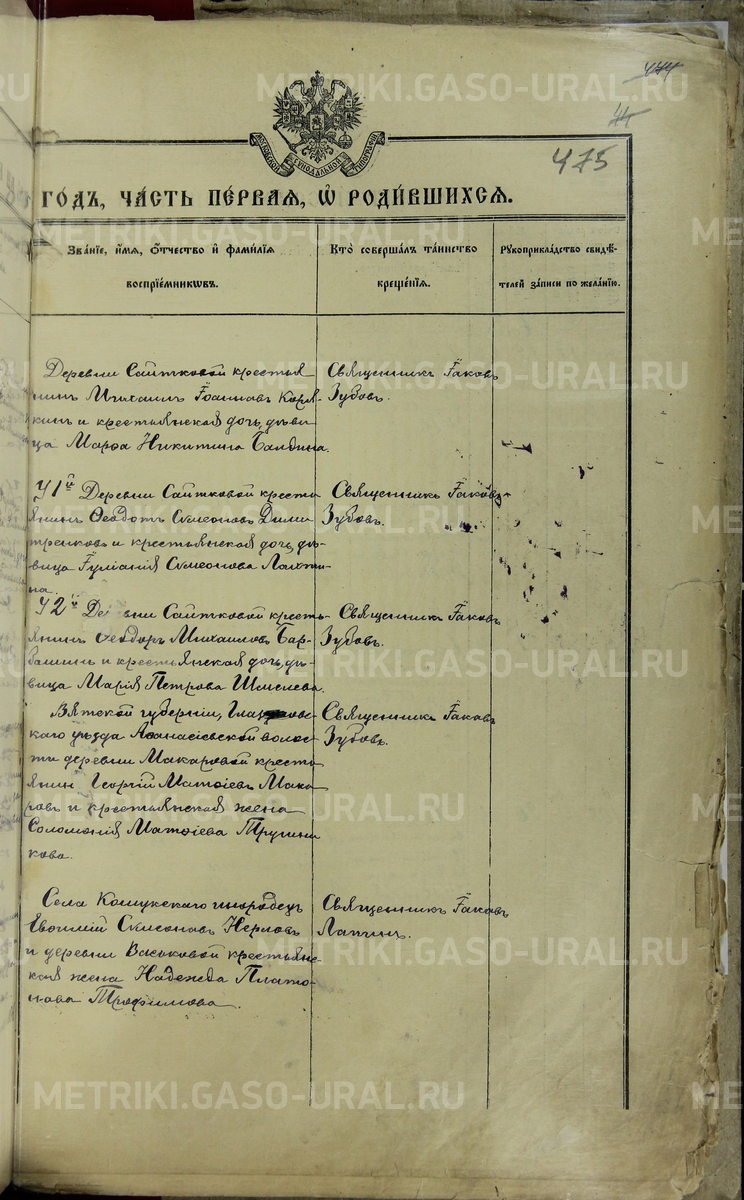 METRIKI.GASO-URAL.RU
475
МОСКОВСКОЙ СѴНОДАЛЬНОЙ ТИПОГРАФІИ
ГО́ДЪ, ЧА́СТЬ ПЕ́РВАЯ, Ѡ҆ РОДИ́ВШИХСЯ.
Зва́нїе, и҆́мя, ѻ҆́тчество и҆ фами́лїя
воспрїе́мникѡвъ.
Кто̀ соверша́лъ та́инство
креще́нїя.
Рꙋкоприкла́дство свидѣ́-
телей за́писи по жела́нїю.
Деревни Саитковой крестья-
нинъ Михаилъ Іоанновъ Коря-
кинъ и крестьянская дочь, дѣви-
ца Марѳа Никитина Бандина.
Священникъ Іаковъ
Зубовъ.
41й Деревни Саитковой кресть-
янинъ Ѳеодотъ Симеоновъ Дими-
тренковъ и крестьянская дочь, дѣ-
вица Іуліанія Симеонова Лапти-
на.
Священникъ Іаковъ
Зубовъ.
42й Деревни Саитковой кресть-
янинъ Ѳеодоръ Михаиловъ Бар-
башинъ и крестьянская дочь, дѣ-
вица Марія Петрова Шмелева.
Священникъ Іаковъ
Зубовъ.
Вятской губерніи, Глазовс-
каго уѣзда Аѳанасіевской волос-
ти деревни Макаровой кресть-
янинъ Георгій Матѳіевъ Мака-
ровъ и крестьянская жена
Соломонія Матѳіева Трушни-
кова.
Священникъ Іаковъ
Зубовъ.
Села Кошукскаго инородецъ
Евѳимій Симеоновъ Нерловъ
и деревни Васьковой крестьянс-
кая жена Надежда Плато-
нова Трофимова.
Священникъ Іаковъ
Лапинъ.